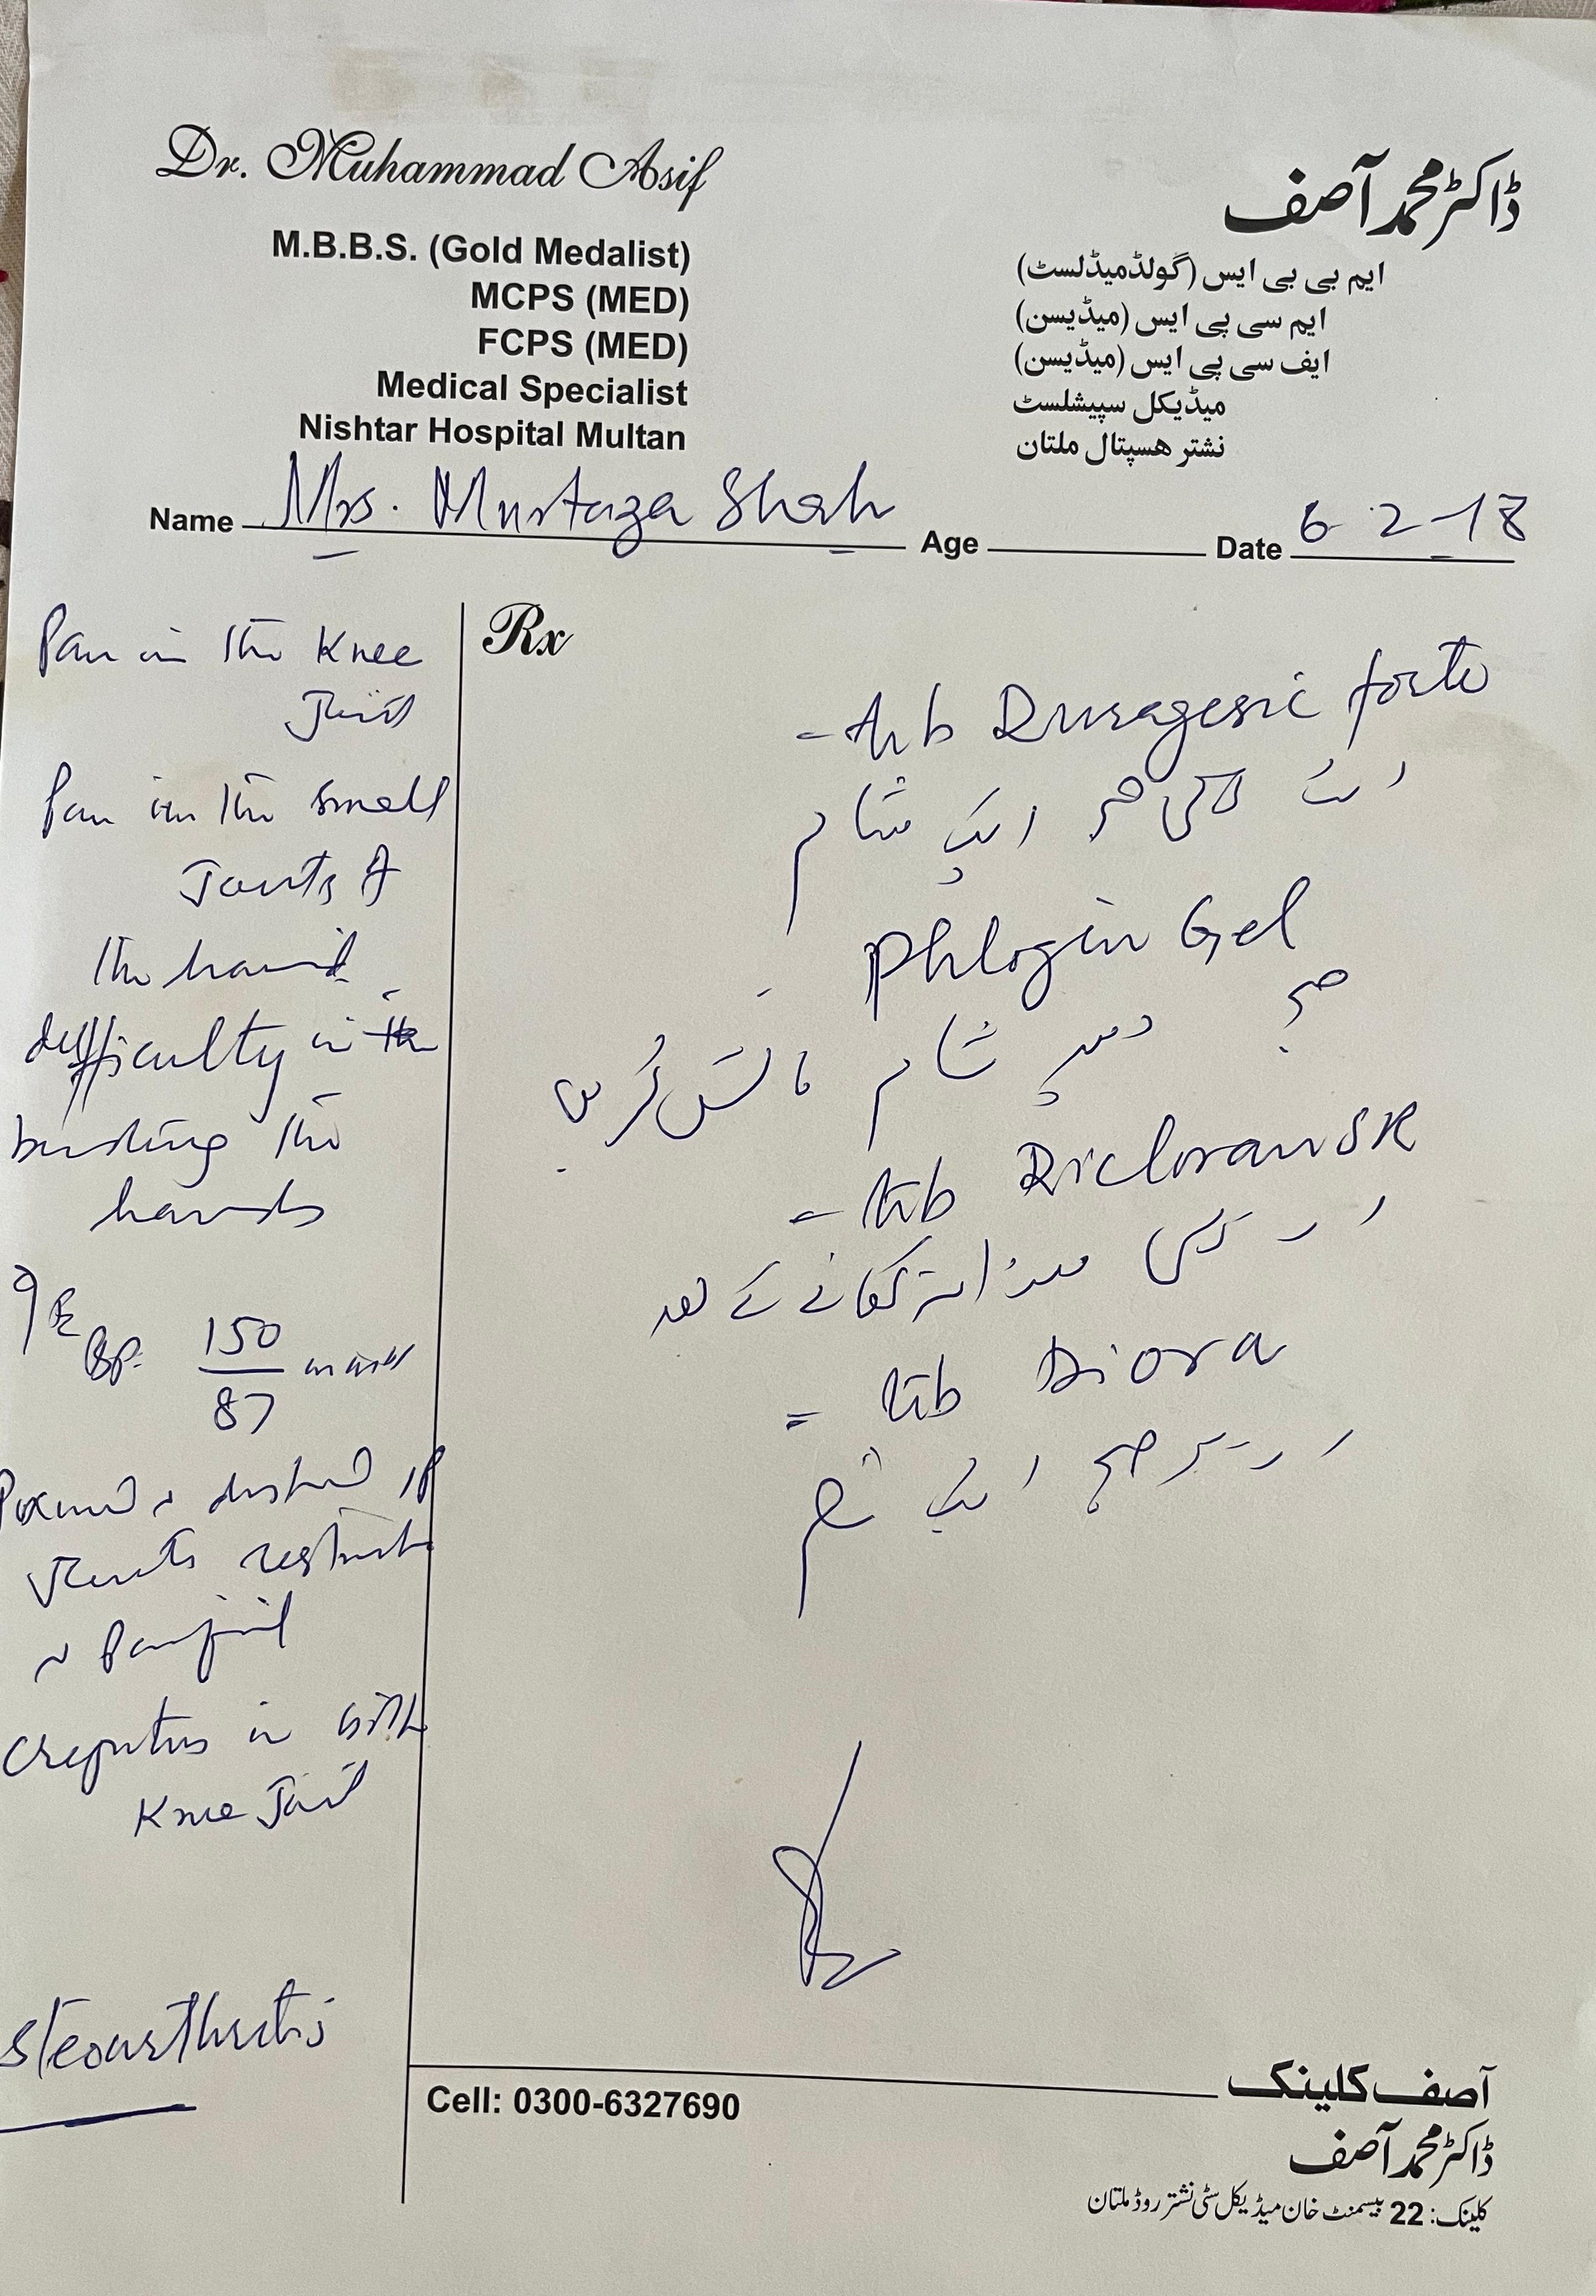 Dr. Muhammad Asif
M.B.B.S. (Gold Medalist)
MCPS (MED)
FCPS (MED)
Medical Specialist
Nishtar Hospital Multan
ڈاکٹر محمد آصف
ایم بی بی ایس (گولڈ میڈلسٹ)
ایم سی پی ایس (میڈیسن)
ایف سی پی ایس (میڈیسن)
میڈیکل سپیشلسٹ
نشتر ھسپتال ملتان
Name Mrs. Murtaza Shah Age Date 6-2-18
Pain in the Knee
Joint
Pain in the small
Joints of
the hand
difficulty in
the
hands
BP. 150
87
Joints
Painful
crepitus in both
Knee Joint
steoarthritis
Rx
- tab Duragesic forte
ایک گولی صبح ایک شام
Phlogin Gel
صبح دوپہر شام مالش کریں
- tab Dicloran SR
کھانے کے بعد
= tab Diora
صبح ایک شام
Cell: 0300-6327690
آصف کلینک
ڈاکٹر محمد آصف
کلینک: 22 بیسمنٹ خان میڈیکل سٹی نشتر روڈ ملتان